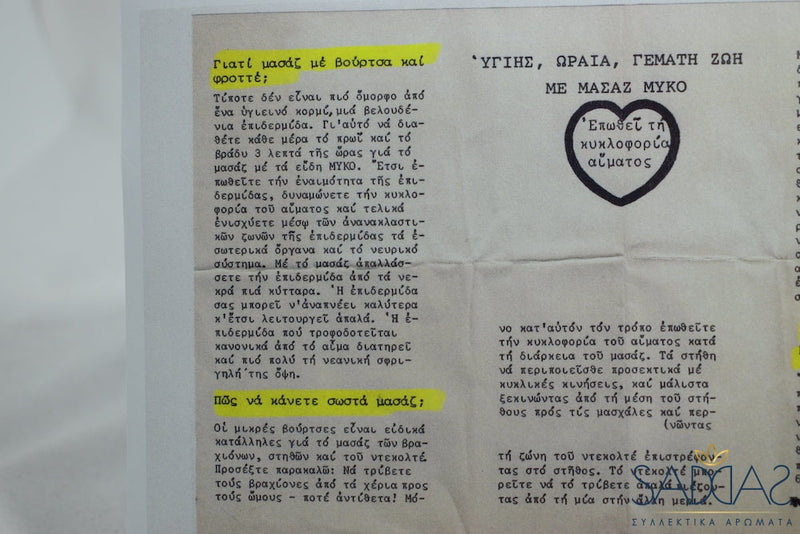 Γιατί μασάζ μέ βούρτσα καί
φροττέ;
Τίποτε δέν εἶναι πιό ὄμορφο ἀπό
ἕνα ὑγιεινό κορμί,μιά βελουδέ-
νια ἐπιδερμίδα. Γι'αὐτό νά δια-
θέτε κάθε μέρα τό πρωΐ καί τό
βράδυ 3 λεπτά τῆς ὥρας γιά τό
μασάζ μέ τά εἴδη ΜΥΚΟ. Ἔτσι ἐ-
πωθεῖτε τήν ἐναιμότητα τῆς ἐπι-
δερμίδας, δυναμώνετε τήν κυκλο-
φορία τοῦ αἵματος καί τελικά
ἐνισχύετε μέσῳ τῶν ἀνανακλαστι-
κῶν ζωνῶν τῆς ἐπιδερμίδας τά ἐ-
σωτερικά ὄργανα καί τό νευρικό
σύστημα. Μέ τό μασάζ ἀπαλλάσ-
σετε τήν ἐπιδερμίδα ἀπό τά νε-
κρά πιά κύτταρα. Ἡ ἐπιδερμίδα
σας μπορεῖ ν'ἀναπνέει καλύτερα
κ'ἔτσι λειτουργεῖ ἁπαλά. Ἡ ἐ-
πιδερμίδα πού τροφοδοτεῖται
κανονικά ἀπό τό αἷμα διατηρεῖ
καί πιό πολύ τή νεανική σφρι-
γηλή της ὄψη.
Πῶς νά κάνετε σωστά μασάζ;
Οἱ μικρές βούρτσες εἶναι εἰδικά
κατάλληλες γιά τό μασάζ τῶν βρα-
χιόνων, στηθῶν καί τοῦ ντεκολτέ
Προσέξτε παρακαλῶ: Νά τρίβετε
τούς βραχίονες ἀπό τά χέρια προς
τούς ὤμους - ποτέ ἀντίθετα! Μό-
ὙΓΙΗΣ, ΩΡΑΙΑ, ΓΕΜΑΤΗ ΖΩΗ
ΜΕ ΜΑΣΑΖ ΜΥΚΟ
Ἐπωθεῖ τή
κυκλοφορία
αἵματος
νο κατ'αὐτόν τόν τρόπο ἐπωθεῖτε
τήν κυκλοφορία τοῦ αἵματος κατά
τή διάρκεια τοῦ μασάζ. Τά στήθη
νά περιποιεῖσθε προσεκτικά μέ
κυκλικές κινήσεις, καί μάλιστα
ξεκινώντας ἀπό τή μέση τοῦ στή-
θους πρός τίς μασχάλες καί περ-
(νῶντας
τή ζώνη τοῦ ντεκολτέ ἐπιστρέφον-
τας στό στῆθος. Τό ντεκολτέ μπο-
ρεῖτε νά τό τρίβετε ἁπαλά πιέζον-
τας ἀπό τή μία στήν ἄλλη μεριά.
SADDAS
ΣΥΛΛΕΚΤΙΚΑ ΑΡΩΜΑΤΑ